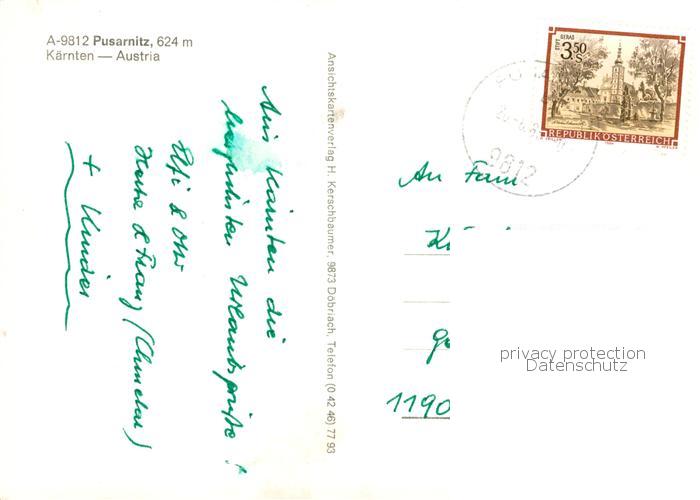 A-9812 Pusarnitz, 624 m
Kärnten — Austria
Aus Kärnten die
herzlichsten Urlaubsgrüße!
Elfi & Otto
& Franz
+ Kinder
Ansichtskartenverlag H. Kerschbaumer, 9873 Döbriach, Telefon (0 42 46) 77 93
STIFT GERAS
3.50 S
REPUBLIK ÖSTERREICH
9812
An Fam
1190
privacy protection
Datenschutz